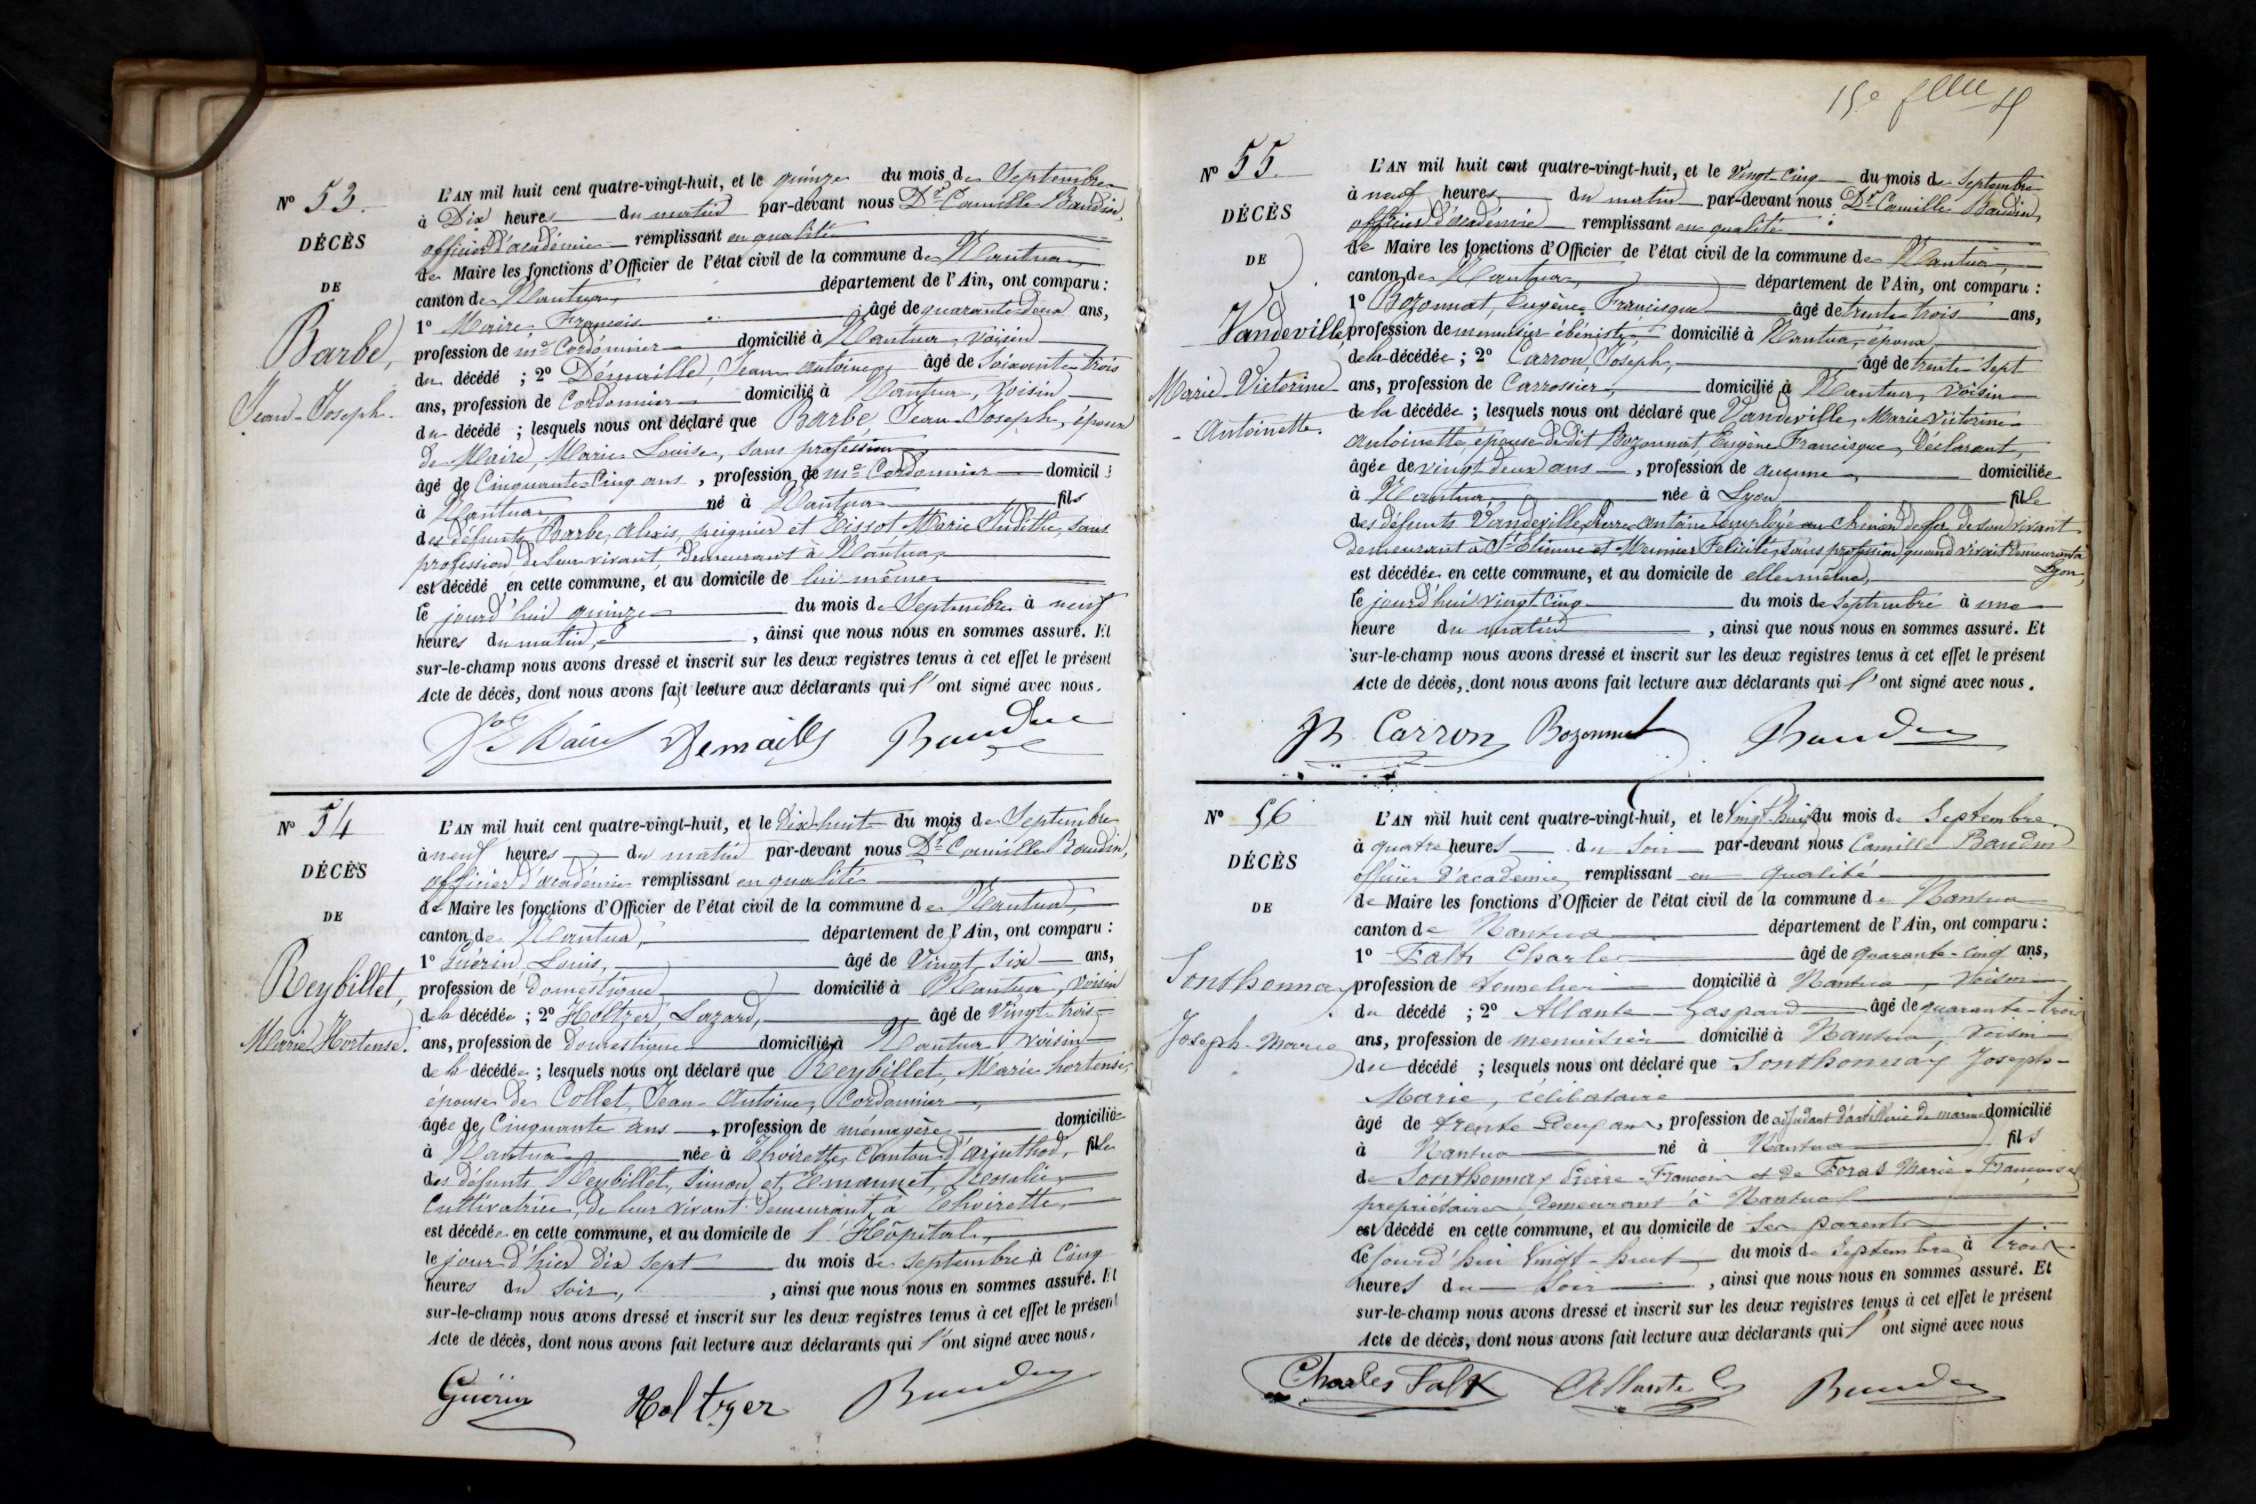 Nº 53.
DÉCÈS
DE
Barbe,
Jean-Joseph.
L'AN mil huit cent quatre-vingt-huit, et le quinze du mois de Septembre
à Dix heures du matin par-devant nous Dr Camille Baudin,
officier d'académie remplissant en qualité
de Maire les fonctions d'Officier de l'état civil de la commune de Nantua,
canton de Nantua, département de l'Ain, ont comparu :
1º Maire, François âgé de quarante deux ans,
profession de md Cordonnier domicilié à Nantua, voisin
du décédé ; 2º Demaille, Jean Antoine âgé de Soixante trois
ans, profession de Cordonnier domicilié à Nantua, voisin
du décédé ; lesquels nous ont déclaré que Barbe, Jean-Joseph, époux
de Maire, Marie Louise, sans profession
âgé de Cinquante-Cinq ans, profession de md Cordonnier domicilié
à Nantua, né à Nantua fils
des défunts Barbe, Alexis, peignier et Tissot Marie Judithe, sans
profession de leur vivant demeurant à Nantua,
est décédé en cette commune, et au domicile de lui-même
le jourd'hui quinze du mois de Septembre à neuf
heures du matin, ainsi que nous nous en sommes assuré. Et
sur-le-champ nous avons dressé et inscrit sur les deux registres tenus à cet effet le présent
Acte de décès, dont nous avons fait lecture aux déclarants qui l'ont signé avec nous.
Maire Demaille Baudin
Nº 54
DÉCÈS
DE
Reybillet,
Marie Hortense.
L'AN mil huit cent quatre-vingt-huit, et le Dix-huit du mois de Septembre
à neuf heures du matin par-devant nous Dr Camille Baudin,
officier d'académie remplissant en qualité
de Maire les fonctions d'Officier de l'état civil de la commune de Nantua,
canton de Nantua, département de l'Ain, ont comparu :
1º Guérin Louis, âgé de Vingt Six ans,
profession de Domestique domicilié à Nantua, voisin
de la décédée ; 2º Holtzer, Lazard, âgé de Vingt-trois
ans, profession de Domestique domicilié à Nantua voisin
de la décédée ; lesquels nous ont déclaré que Reybillet, Marie hortense,
épouse de Collet, Jean-Antoine, Cordonnier,
âgée de Cinquante ans, profession de ménagère domiciliée
à Nantua née à Thoirette, Canton d'arinthod, fille
des défunts Reybillet, Simon et Emonnet, Rosalie,
Cultivatrice, de leur vivant demeurant à Thoirette,
est décédée en cette commune, et au domicile de l'Hôpital,
le jour d'hier Dix Sept du mois de Septembre à Cinq
heures du soir, ainsi que nous nous en sommes assuré. Et
sur-le-champ nous avons dressé et inscrit sur les deux registres tenus à cet effet le présent
Acte de décès, dont nous avons fait lecture aux déclarants qui l'ont signé avec nous.
Guérin Holtzer Baudin
15e
Nº 55.
DÉCÈS
DE
Vandeville,
Marie Victorine
Antoinette.
L'AN mil huit cent quatre-vingt-huit, et le Vingt-Cinq du mois de Septembre
à neuf heures du matin par-devant nous Dr Camille Baudin,
officier d'académie remplissant en qualité
de Maire les fonctions d'Officier de l'état civil de la commune de Nantua,
canton de Nantua, département de l'Ain, ont comparu :
1º Bozonnat, Eugène Francisque âgé de trente-trois ans,
profession de menuisier ébéniste, domicilié à Nantua, époux
de la décédée ; 2º Carron, Joseph, âgé de trente Sept
ans, profession de Carrossier, domicilié à Nantua, voisin
de la décédée ; lesquels nous ont déclaré que Vandeville, Marie Victorine
Antoinette, épouse de dit Bozonnat, Eugène Francisque, Déclarant,
âgée de vingt deux ans, profession de aucune domiciliée
à Nantua née à Lyon fille
des défunts Vandeville, Pierre Antoine employé au Chemin de fer de son vivant
demeurant à St Etienne et Meunier Félicité, sans profession quand vivait demeurant à
Lyon,
est décédée en cette commune, et au domicile de elle même,
le jourd'hui vingt Cinq du mois de Septembre à une
heure du matin, ainsi que nous nous en sommes assuré. Et
sur-le-champ nous avons dressé et inscrit sur les deux registres tenus à cet effet le présent
Acte de décès, dont nous avons fait lecture aux déclarants qui l'ont signé avec nous.
Carron Bozonnat Baudin
Nº 56
DÉCÈS
DE
Sonthonnax
Joseph-Marie
L'AN mil huit cent quatre-vingt-huit, et le Vingt-huit du mois de Septembre
à quatre heures du Soir par-devant nous Camille Baudin
officier d'académie, remplissant en qualité
de Maire les fonctions d'Officier de l'état civil de la commune de Nantua
canton de Nantua département de l'Ain, ont comparu :
1º Falk Charles âgé de quarante-cinq ans,
profession de tonnelier domicilié à Nantua, voisin
du décédé ; 2º Allante Gaspard âgé de quarante-trois
ans, profession de menuisier domicilié à Nantua, voisin
du décédé ; lesquels nous ont déclaré que Sonthonnax Joseph-
Marie, célibataire
âgé de trente Deux ans, profession de adjudant d'artillerie de marine domicilié
à Nantua né à Nantua fils
de Sonthonnax Pierre-François et de Foras Marie-Françoise
propriétaires demeurant à Nantua
est décédé en cette commune, et au domicile de ses parents
le jourd'hui Vingt-huit du mois de Septembre à trois
heures du soir, ainsi que nous nous en sommes assuré. Et
sur-le-champ nous avons dressé et inscrit sur les deux registres tenus à cet effet le présent
Acte de décès, dont nous avons fait lecture aux déclarants qui l'ont signé avec nous
Charles Falk Allante G Baudin